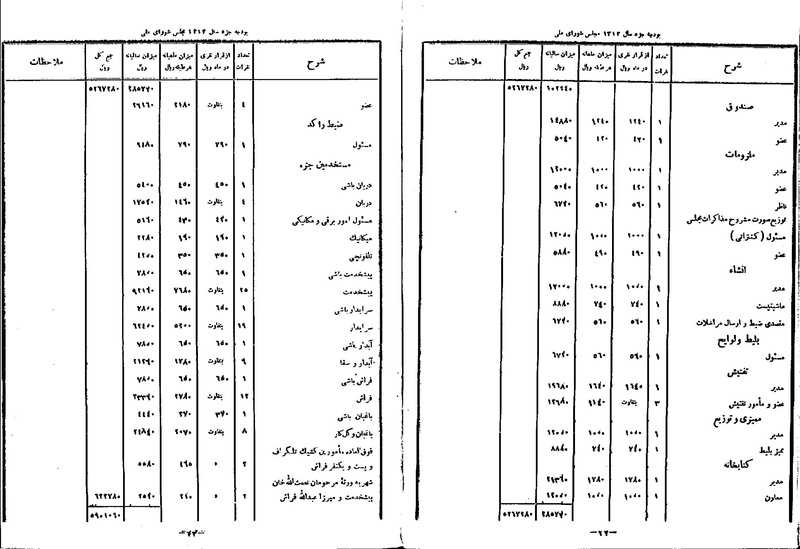 بودجه جزء سال ۱۳۱۳ مجلس شورای ملی
شرح تعداد نفرات از قرار نفری در ماه ریال میزان ماهانه هر طبقه ریال میزان سالیانه ریال جمع کل ریال ملاحظات
۱۰۲۲۴۰ ۵۲۶۷۲۸۰
صندوق
مدیر ۱ ۱۲۴۰ ۱۲۴۰ ۱۴۸۸۰
عضو ۱ ۴۲۰ ۴۲۰ ۵۰۴۰
ملزومات
مدیر ۱ ۱۰۰۰ ۱۰۰۰ ۱۲۰۰۰
عضو ۱ ۴۲۰ ۴۲۰ ۵۰۴۰
ناظر ۱ ۵۶۰ ۵۶۰ ۶۷۲۰
توزیع صورت مشروح مذاکرات مجلس
مسئول (کنتراتی) ۱ ۱۰۰۰ ۱۰۰۰ ۱۲۰۰۰
عضو ۱ ۴۹۰ ۴۹۰ ۵۸۸۰
انشاء
مدیر ۱ ۱۰۰۰ ۱۰۰۰ ۱۲۰۰۰
ماشینیست ۱ ۷۴۰ ۷۴۰ ۸۸۸۰
متصدی ضبط و ارسال مراسلات ۱ ۵۶۰ ۵۶۰ ۶۷۲۰
بلیط و لوایح
مسئول ۱ ۵۶۰ ۵۶۰ ۶۷۲۰
تفتیش
مدیر ۱ ۱۶۴۰ ۱۶۴۰ ۱۹۶۸۰
عضو و مأمور تفتیش ۳ بتفاوت ۱۱۴۰ ۱۳۶۸۰
ممیزی و توزیع
مدیر ۱ ۱۰۰۰ ۱۰۰۰ ۱۲۰۰۰
ممیز بلیط ۱ ۷۴۰ ۷۴۰ ۸۸۸۰
کتابخانه
مدیر ۱ ۱۷۸۰ ۱۷۸۰ ۲۱۳۶۰
معاون ۱ ۱۰۰۰ ۱۰۰۰ ۱۲۰۰۰
۲۸۵۷۲۰ ۵۲۶۷۲۸۰
–۲۲–
بودجه جزء سال ۱۳۱۳ مجلس شورای ملی
شرح تعداد نفرات از قرار نفری در ماه ریال میزان ماهانه هر طبقه ریال میزان سالیانه ریال جمع کل ریال ملاحظات
۲۸۵۷۲۰ ۵۲۶۷۲۸۰
عضو ۴ بتفاوت ۲۱۸۰ ۲۶۱۶۰
ضبط راکد
مسئول ۱ ۷۹۰ ۷۹۰ ۹۴۸۰
مستخدمین جزء
دربان باشی ۱ ۴۵۰ ۴۵۰ ۵۴۰۰
دربان ۴ بتفاوت ۱۴۶۰ ۱۷۵۲۰
مسئول امور برقی و مکانیکی ۱ ۴۳۰ ۴۳۰ ۵۱۶۰
میکانیک ۱ ۱۹۰ ۱۹۰ ۲۲۸۰
تلفونچی ۱ ۳۵۰ ۳۵۰ ۴۲۰۰
پیشخدمت باشی ۱ ۶۵۰ ۶۵۰ ۷۸۰۰
پیشخدمت ۲۵ بتفاوت ۷۶۸۰ ۹۲۱۶۰
سرایدار باشی ۱ ۶۵۰ ۶۵۰ ۷۸۰۰
سرایدار ۱۹ بتفاوت ۵۲۰۰ ۶۲۴۰۰
آبدار باشی ۱ ۶۵۰ ۶۵۰ ۷۸۰۰
آبدار و سقا ۹ بتفاوت ۱۷۸۰ ۲۱۳۶۰
فراش باشی ۱ ۶۵۰ ۶۵۰ ۷۸۰۰
فراش ۱۲ بتفاوت ۲۷۸۰ ۳۳۳۶۰
باغبان باشی ۱ ۳۷۰ ۳۷۰ ۴۴۴۰
باغبان و گلکار ۸ بتفاوت ۲۰۷۰ ۲۴۸۴۰
فوق العاده مأمورین کشیک تلگراف
و پست و یکنفر فراش ۲ » ۴۶۵ ۵۵۸۰
شهریه ورثه مرحومان نعمت الله خان
پیشخدمت و میرزا عبدالله فراش ۲ » ۲۱۰ ۲۵۲۰ ۶۳۳۷۸۰
۵۹۰۱۰۶۰
–۲۳–